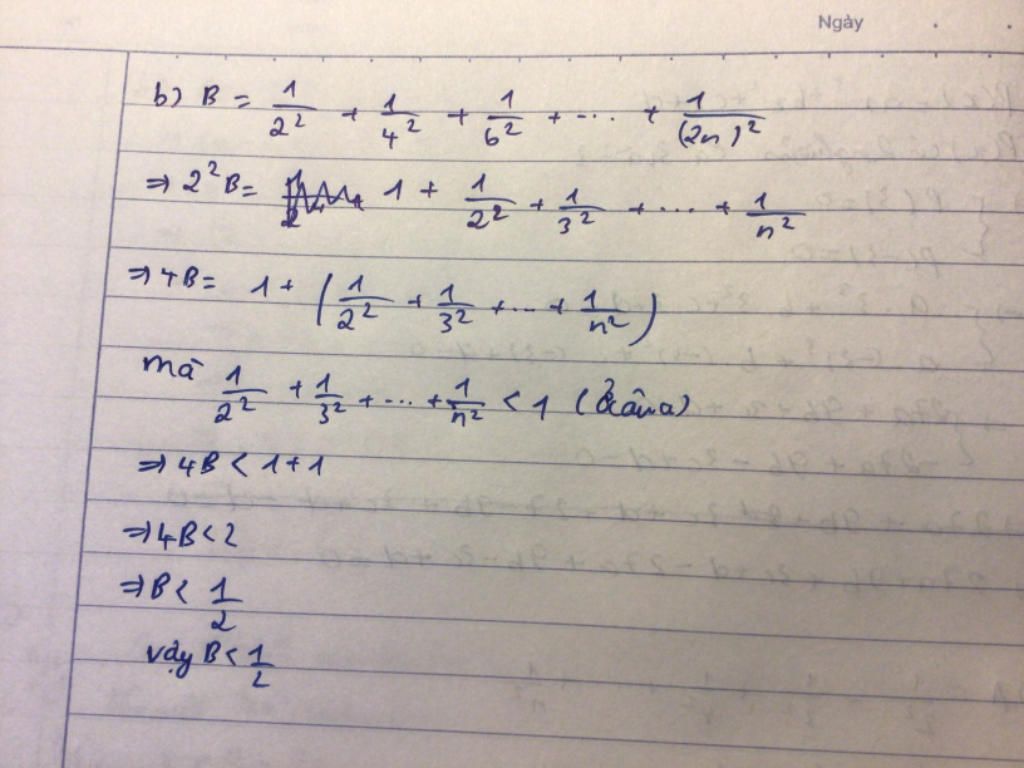 Ngày
b) B = 1/2² + 1/4² + 1/6² + ... + 1/(2n)²
⇒ 2²B = 1 + 1/2² + 1/3² + ... + 1/n²
⇒ 4B = 1 + (1/2² + 1/3² + ... + 1/n²)
mà 1/2² + 1/3² + ... + 1/n² < 1 (ở câu a)
⇒ 4B < 1 + 1
⇒ 4B < 2
⇒ B < 1/2
vậy B < 1/2